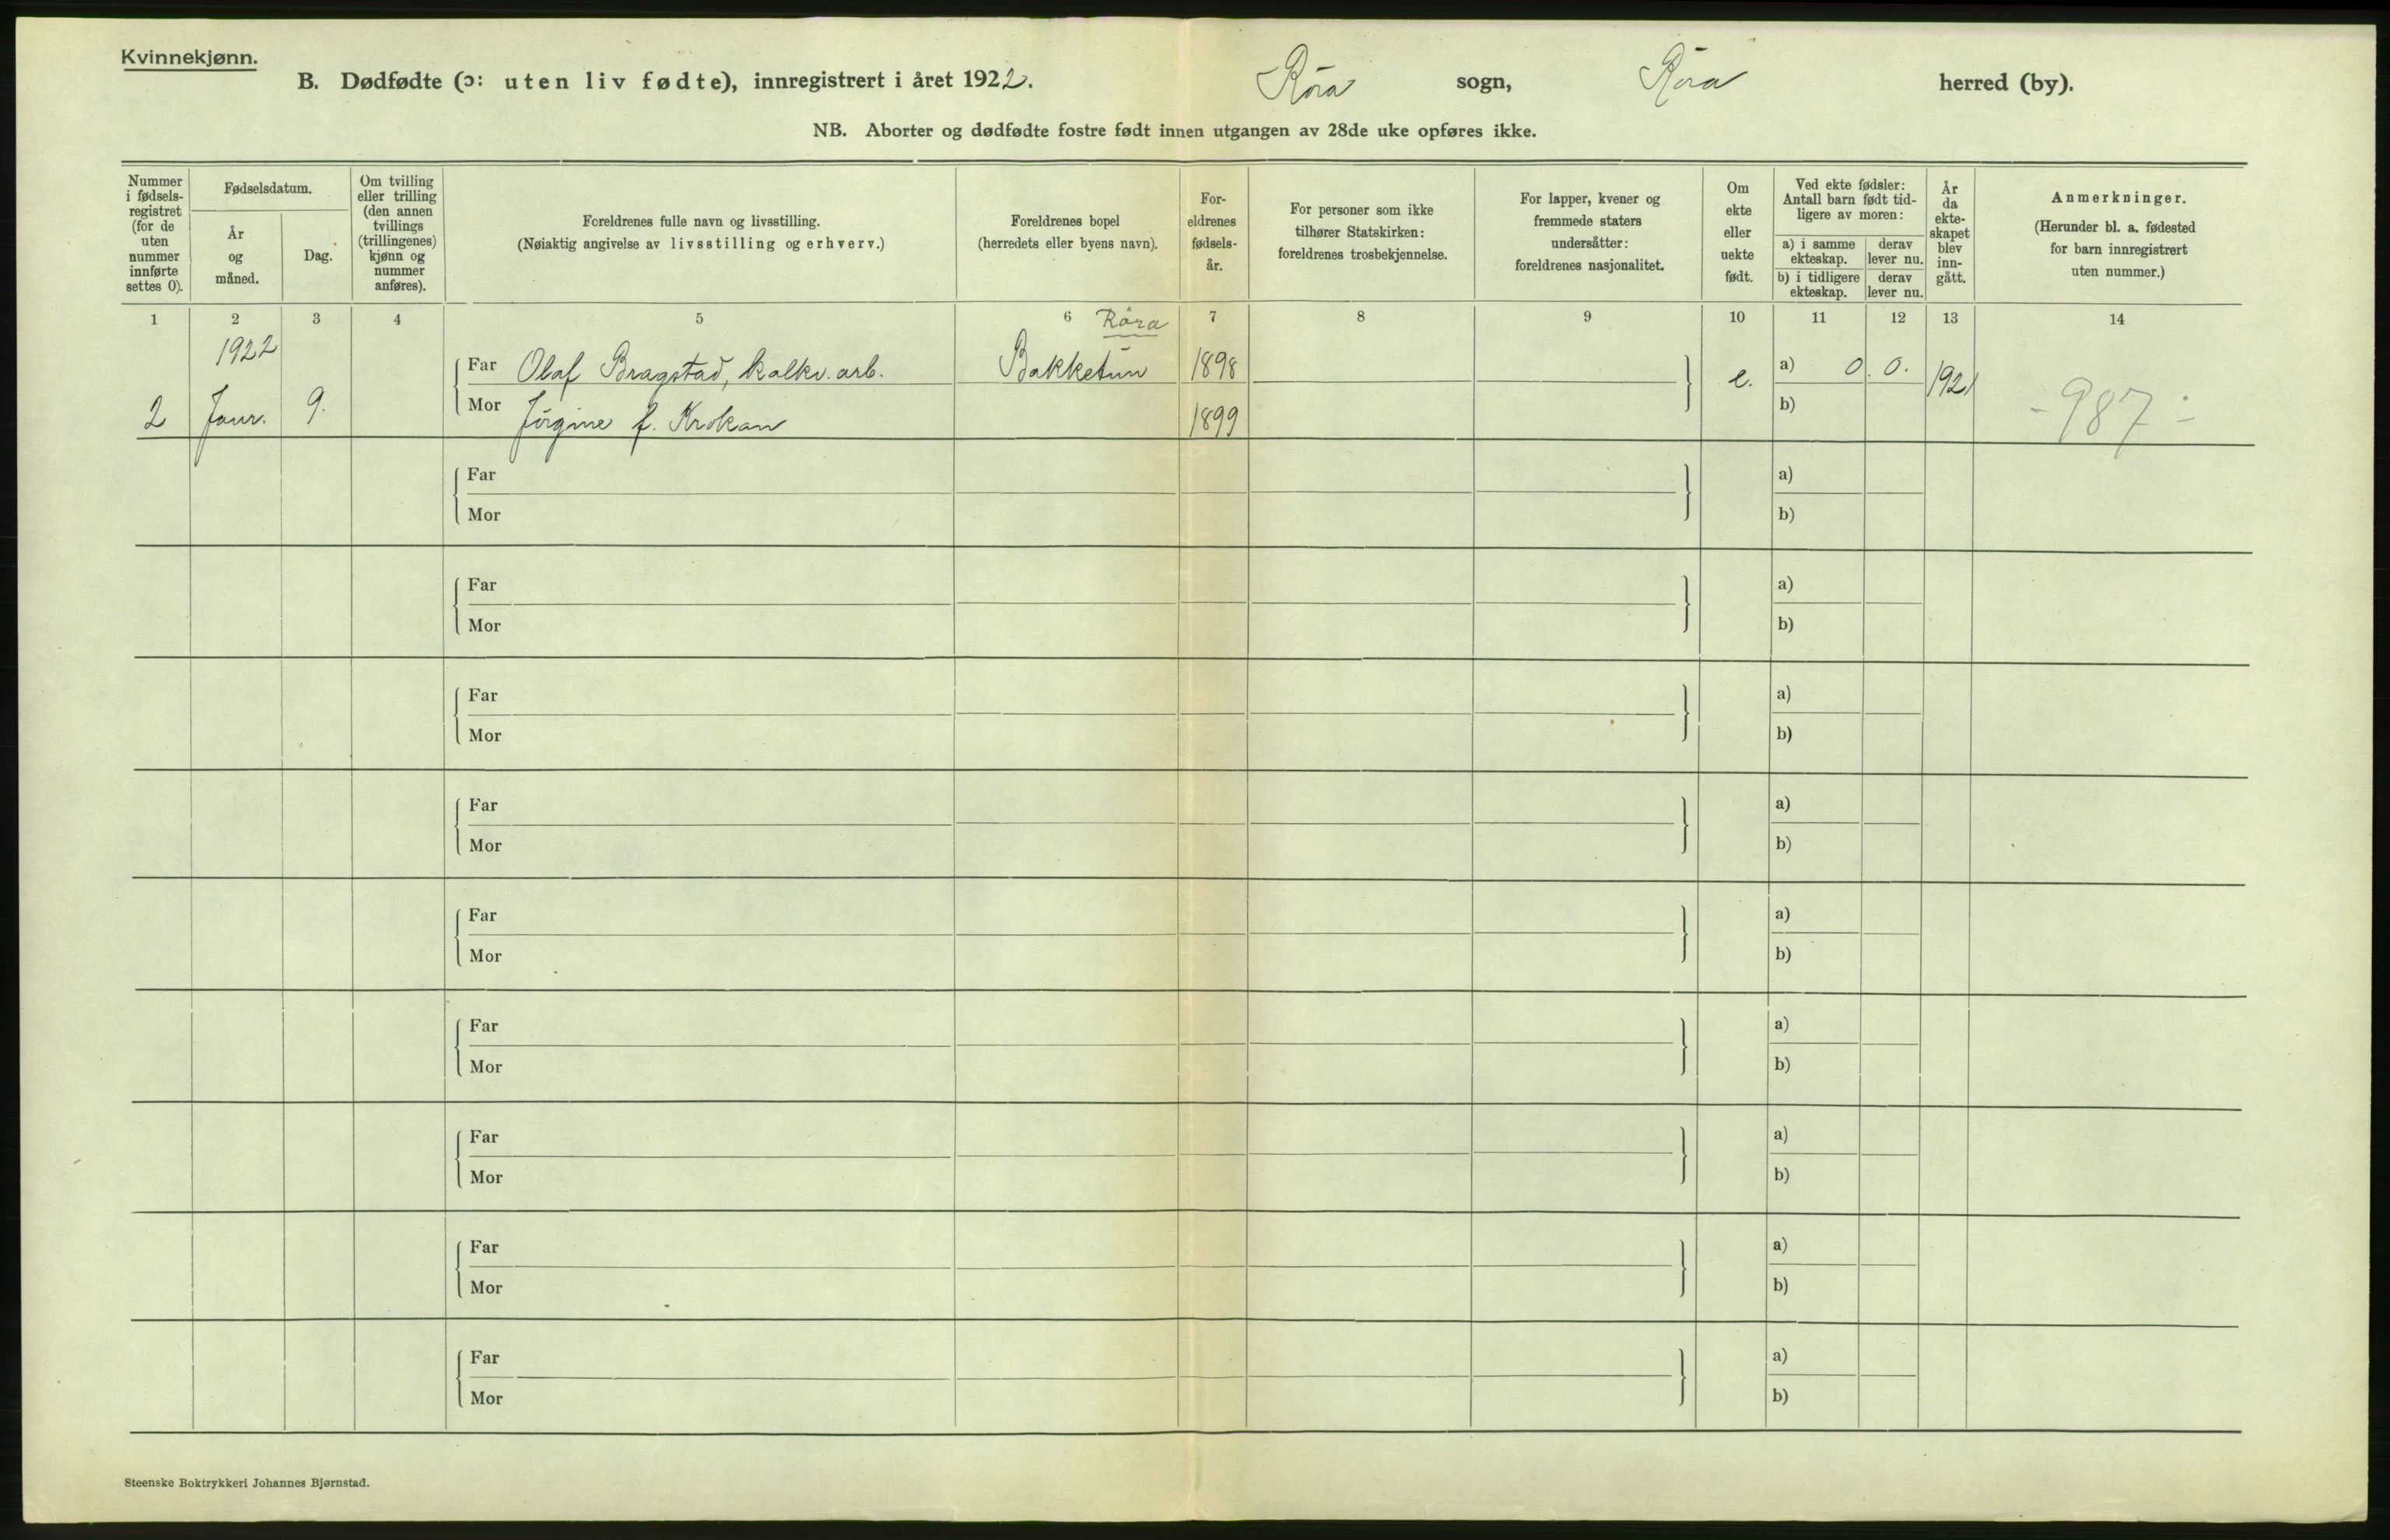 Kvinnekjønn.
B. Dødfødte (ɔ: uten liv fødte), innregistrert i året 1922. Röra sogn, Röra herred (by).
NB. Aborter og dødfødte fostre født innen utgangen av 28de uke opføres ikke.
Nummer
i fødsels-
registret
(for de
uten
nummer
innførte
settes 0).
Fødselsdatum.
År
og
måned.
Dag.
Om tvilling
eller trilling
(den annen
tvillings
(trillingenes)
kjønn og
nummer
anføres).
Foreldrenes fulle navn og livsstilling.
(Nøiaktig angivelse av livsstilling og erhverv.)
Foreldrenes bopel
(herredets eller byens navn).
For-
eldrenes
fødsels-
år.
For personer som ikke
tilhører Statskirken:
foreldrenes trosbekjennelse.
For lapper, kvener og
fremmede staters
undersåtter:
foreldrenes nasjonalitet.
Om
ekte
eller
uekte
født.
Ved ekte fødsler:
Antall barn født tid-
ligere av moren:
a) i samme
ekteskap.
derav
lever nu.
b) i tidligere
ekteskap.
derav
lever nu.
År
da
ekte-
skapet
blev
inn-
gått.
Anmerkninger.
(Herunder bl. a. fødested
for barn innregistrert
uten nummer.)
1 2 3 4 5 6 7 8 9 10 11 12 13 14
Röra
1922
Far Olaf Bragstad, kalkv. arb. Bakketun 1898 e. a) 0 0. 1921
2 Janr. 9. Mor Jörgine f. Krokan 1899 b) -987-
Far a)
Mor b)
Far a)
Mor b)
Far a)
Mor b)
Far a)
Mor b)
Far a)
Mor b)
Far a)
Mor b)
Far a)
Mor b)
Far a)
Mor b)
Far a)
Mor b)
Steenske Boktrykkeri Johannes Bjørnstad.